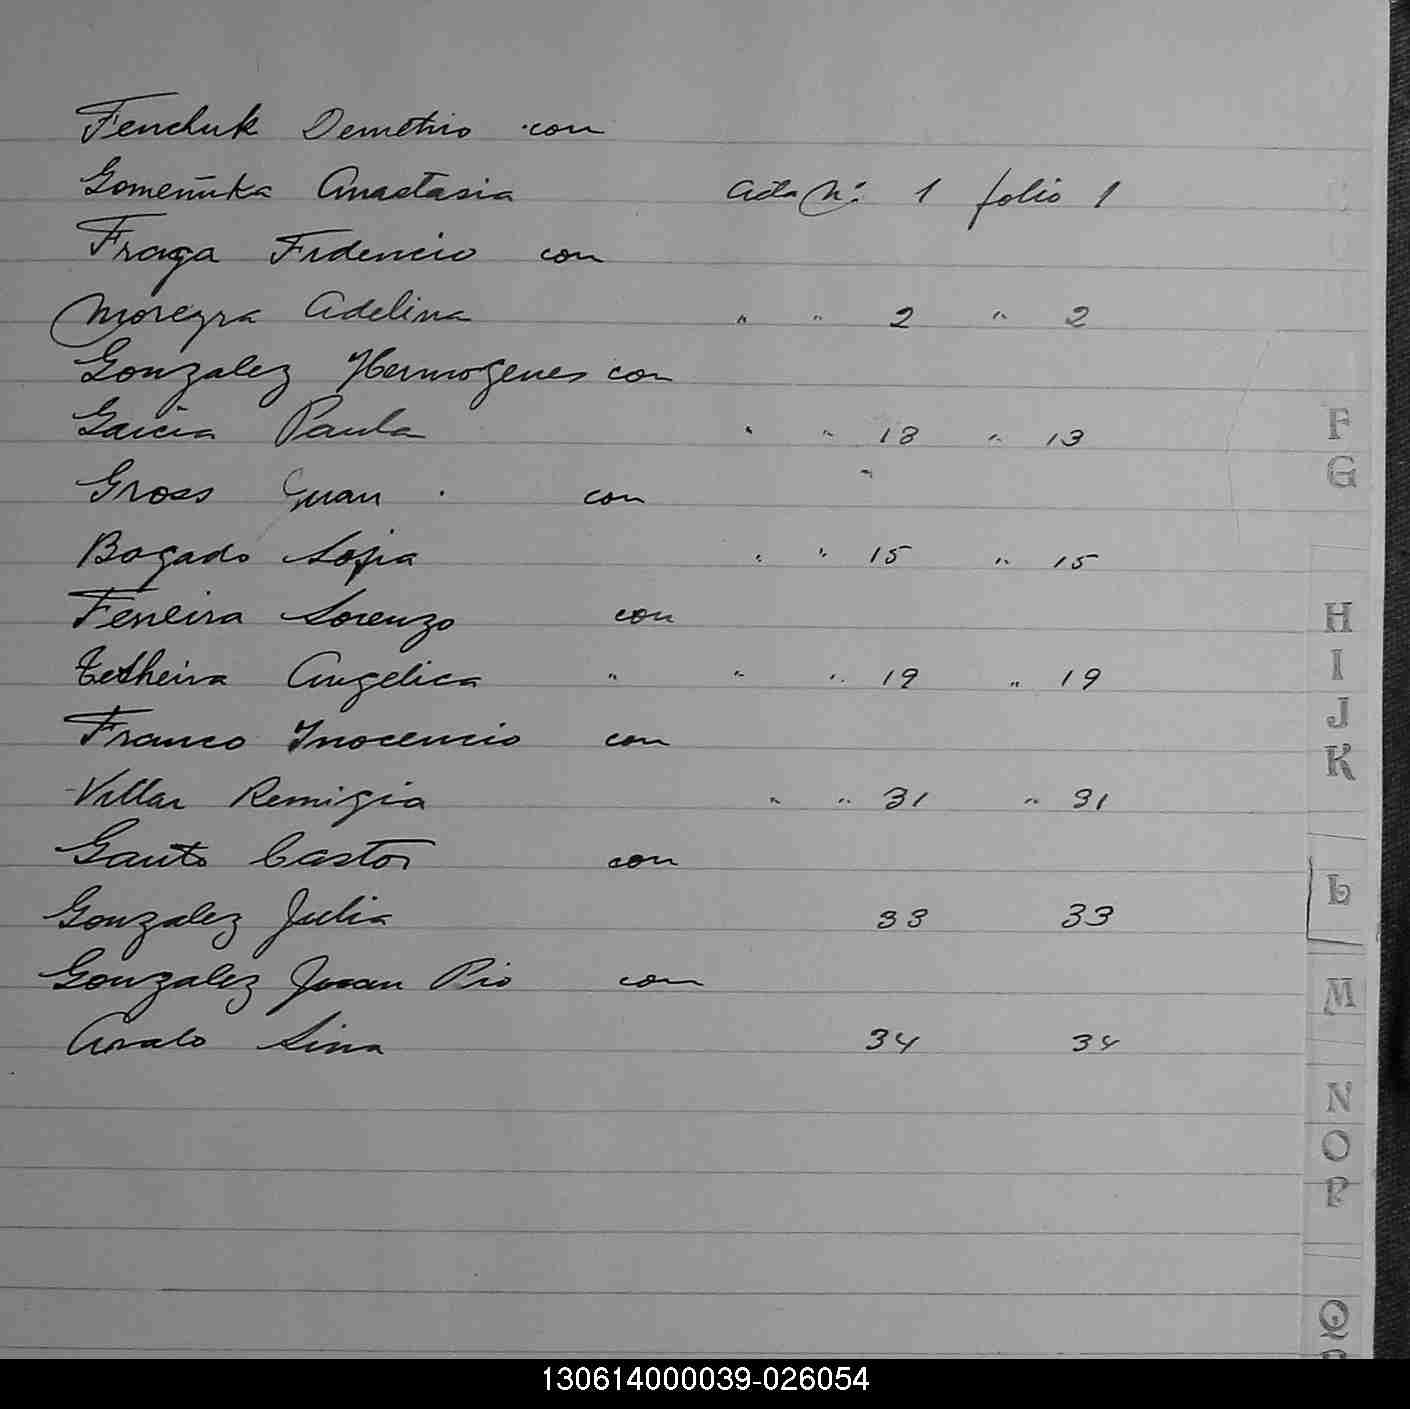 Fenchuk Demetrio con
Gomeñuka Anastasia acta Nº 1 folio 1
Fraga Fidencio con
Moreyra Adelina " " 2 " 2
Gonzalez Hermogenes con
Garcia Paula " " 13 " 13
Gross Juan con
Bogado Sofia " " 15 " 15
Ferreira Lorenzo con
Angelica " " " 19 " 19
Franco Inocencio con
Villar Remigia " " 31 " 31
Gauto Castor con
Gonzalez Julia 33 33
Gonzalez Juan Pio con
Lina 34 34
F
G
H
I
J
K
L
M
N
O
P
Q
130614000039-026054